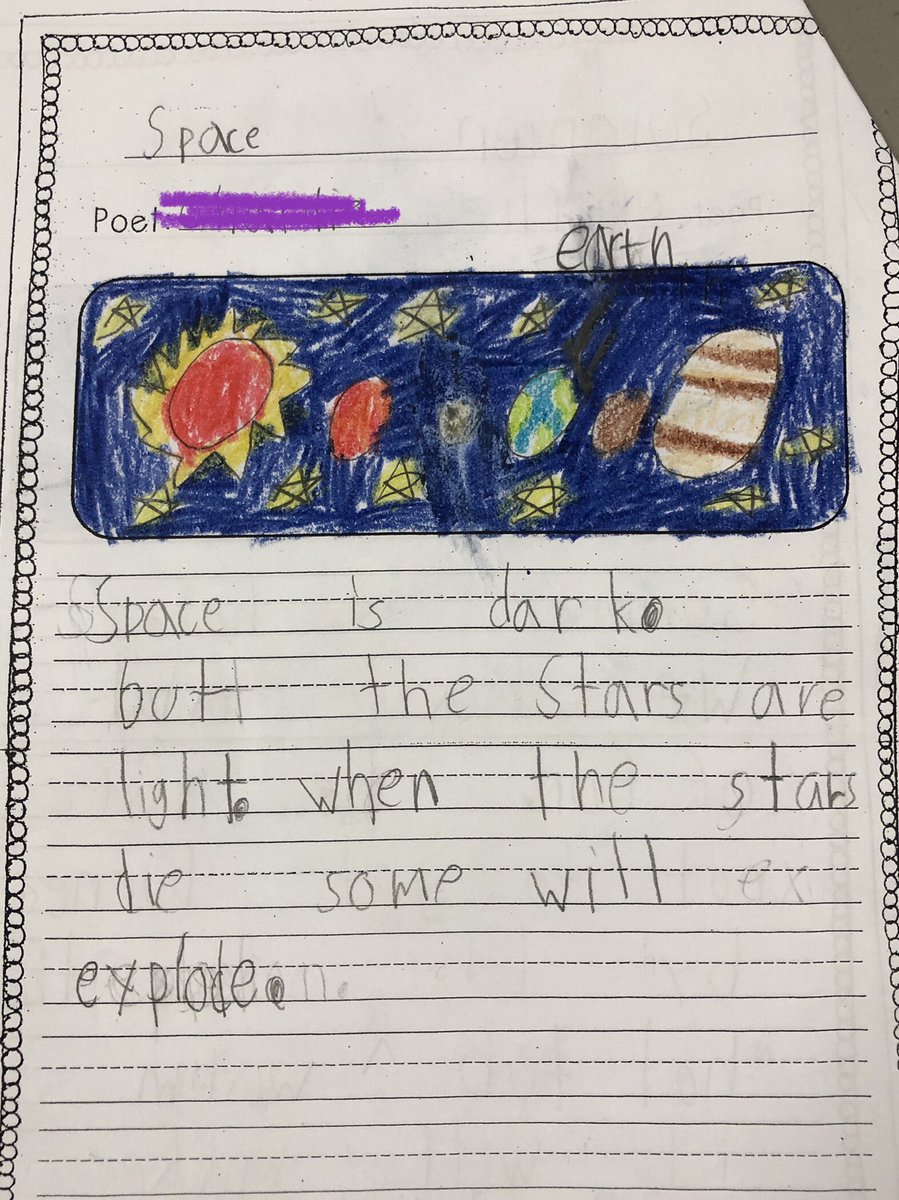 Space
Poet
earth
Space is dark.
but the stars are
light. when the stars
die some will ex
explode.